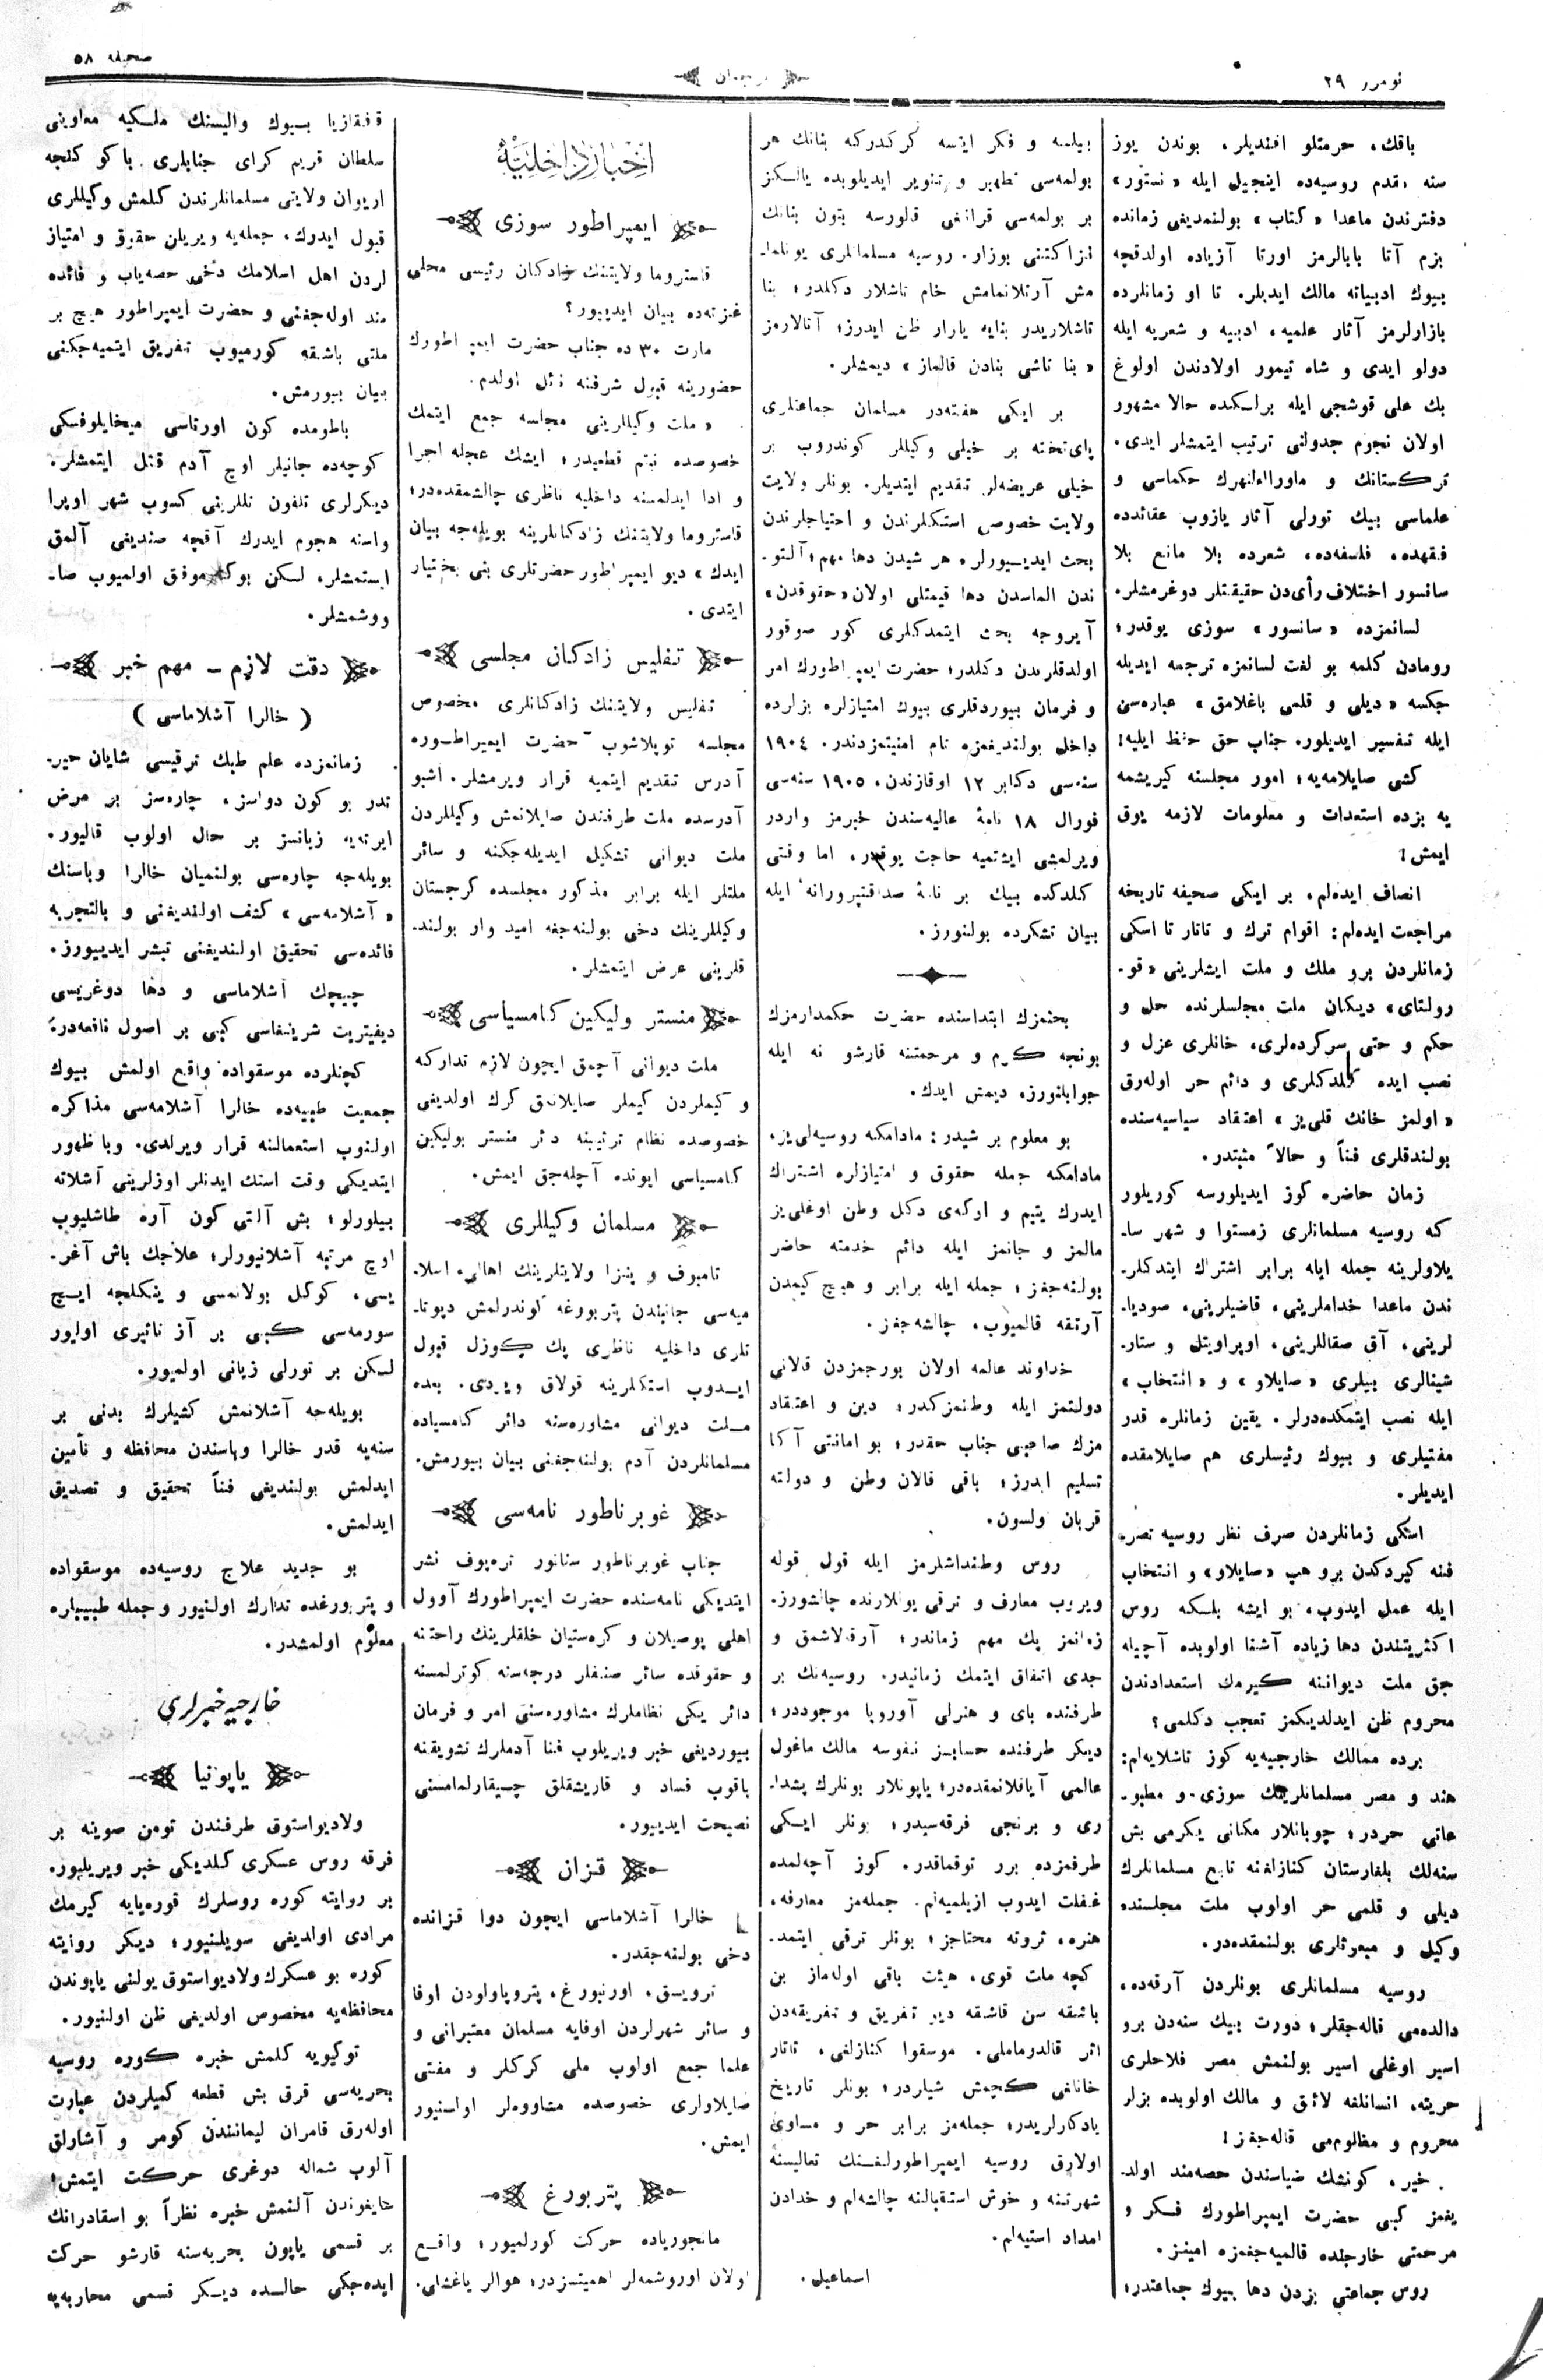 نومرو ٢٩
ترجمان
صحيفه ٥٨
باقك، حرمتلو افنديلر، بوندن يوز
سنه مقدم روسيه‌ده اينجيل ايله «نستور»
دفترندن ماعدا «كتاب» بولنمديغى زمانده
بزم آتا بابالرمز اورتا آزياده اولدقچه
بيوك ادبياته مالك ايديلر. تا او زمانلرده
بازارلرمز آثار علميه، ادبيه و شعريه ايله
دولو ايدى و شاه تيمور اولادندن اولوغ
بك على قوشجى ايله برلكده حالا مشهور
اولان نجوم جدولنى ترتيب ايتمشلر ايدى.
تركستانك و ماوراءالنهرك حكماسى و
علماسى بيك تورلى آثار يازوب عقائدده
فقهده، فلسفه‌ده، شعرده بلا مانع بلا
سانسور اختلاف رأى‌دن حقيقتلر دوغرمشلر.
لسانمزده «سانسور» سوزى يوقدر؛
رومادن كلمه بو لغت لسانمزه ترجمه ايديله
جكسه «ديلى و قلمى باغلامق» عباره‌سى
ايله تفسير ايديلور. جناب حق حفظ ايليه!
كشى صايلامه‌يه؛ امور مجلسنه كيريشمه
يه بزده استعدات و معلومات لازمه يوق
ايمش!
انصاف ايده‌لم، بر ايكى صحيفه تاريخه
مراجعت ايده‌لم: اقوام ترك و تاتار تا اسكى
زمانلردن برو ملك و ملت ايشلرينى «قو-
رولتاى» ديكان ملت مجلسلرنده حل و
حكم و حتى سركرده‌لرى، خانلرى عزل و
نصب ايده كلدكلرى و دائم حر اوله‌رق
«اولمز خانك قلى‌يز» اعتقاد سياسيه‌سنده
بولندقلرى فناً و حالاً مثبتدر.
زمان حاضره كوز ايديلورسه كوريلور
كه روسيه مسلمانلرى زمستوا و شهر سا-
يلاولرينه جمله ايله برابر اشتراك ايتدكلر-
ندن ماعدا خداملرينى، قاضيلرينى، صوديا-
لرينى، آق صقاللرينى، اوپراويتل و ستار-
شينالرى بيللرى «صايلاو» و «انتخاب»
ايله نصب ايتمكده‌درلر. يقين زمانلره قدر
مفتيلرى و بيوك رئيسلرى هم صايلامقده
ايديلر.
اسكى زمانلردن صرف نظر روسيه تصر-
فنه كيردكدن برو هپ «صايلاو» و انتخاب
ايله عمل ايدوب، بو ايشه بلكه روس
اكثريتندن دها زياده آشنا اولوبده آچيله
جق ملت ديواننه كيرمك استعدادندن
محروم ظن ايدلديكمز تعجب دكلمى؟
برده ممالك خارجيه‌يه كوز تاشلايه‌لم:
هند و مصر مسلمانلرينك سوزى و مطبو-
عاتى حردر؛ چوبانلار مكانى يكرمى بش
سنه‌لك بلغارستان كنازلغنه تابع مسلمانلرك
ديلى و قلمى حر اولوب ملت مجلسنده
وكيل و مبعوثلرى بولنمقده‌در.
روسيه مسلمانلرى بونلردن آرقه‌ده،
دالده‌مى قاله‌جقلر؛ دورت بيك سنه‌دن برو
اسير اوغلى اسير بولنمش مصر فلاحلرى
حريته، انسانلغه لائق و مالك اولوبده بزلر
محروم و مظلوم‌مى قاله‌جغز!
خير، كونشك ضياسندن حصه‌مند اولد-
يغمز كبى حضرت ايمپراطورك فكر و
مرحمتى خارجنده قالميه‌جغمزه امينز.
روس جماعتى بزدن دها بيوك جماعتدر؛
بيلمه و فكر ايتسه كركدركه بنانك هر
بولمه‌سى تطهير و تنوير ايديلوبده يالكز
بر بولمه‌سى قرانغى قلورسه بتون بنانك
نزاكتنى بوزار. روسيه مسلمانلرى يونلما-
مش آرتلانمامش خام تاشلار دكلدر؛ بنا
تاشلاريدر بنايه يارار ظن ايدرز؛ آتالارمز
«بنا تاشى بنادن قالماز» ديمشلر.
بر ايكى هفته‌در مسلمان جماعتلرى
پاى‌تخته بر خيلى وكيللر كوندروب بر
خيلى عريضه‌لر تقديم ايتديلر. بونلر ولايت
ولايت خصوصى استكلرندن و احتياجلرندن
بحث ايديورلر، هر شيدن دها مهم، آلتو-
ندن الماسدن دها قيمتلى اولان «حقوقدن»
آيروجه بحث ايتمدكلرى كور صوقور
اولدقلرندن دكلدر؛ حضرت ايمپراطورك امر
و فرمان بيوردقلرى بيوك امتيازلره بزلرده
داخل بولنديغمزه تام امنيتمزدندر. ١٩٠٤
سنه‌سى دكابر ١٢ اوقازندن، ١٩٠٥ سنه‌سى
فورال ١٨ نامهٔ عاليه‌سندن خبرمز واردر
ويرلمشى ايشتميه حاجت يوقدر، اما وقتى
كلدكده بيك بر نامهٔ صداقتپرورانه ايله
بيان تشكرده بولنورز.
بحثمزك ابتداسنده حضرت حكمدارمزك
بونجه كرم و مرحمتنه قارشو نه ايله
جوابلنورز، ديمش ايدك.
بو معلوم بر شيدر: مادامكه روسيه‌لى‌يز،
مادامكه جمله حقوق و امتيازلره اشتراك
ايدرك يتيم و اركه‌ى دكل وطن اوغلى‌يز
مالمز و جانمز ايله دائم خدمته حاضر
بولنه‌جغز؛ جمله ايله برابر و هيچ كيمدن
آرتقه قالميوب، چالشه‌جغز.
خداوند عالمه اولان بورجمزدن قلانى
دولتمز ايله وطنمزكدر؛ دين و اعتقاد
مزك صاحبى جناب حقدر؛ بو امانتى آكا
تسليم ايدرز؛ باقى قالان وطن و دولته
قربان اولسون.
روس وطنداشلرمز ايله قول قوله
ويروب معارف و ترقى يوللارنده چالشورز.
زمانمز پك مهم زماندر؛ آرقه‌لاشمق و
جدى اتفاق ايتمك زمانيدر. روسيه‌نك بر
طرفنده باى و هنرلى آوروپا موجوددر؛
ديكر طرفنده حسابسز نفوسه مالك ماغول
عالمى آياقلانمقده‌در؛ ياپونلار بونلرك پشدا-
رى و برنجى فرقه‌سيدر؛ بونلر ايكى
طرفمزده برر توقماقدر. كوز آچه‌لمده
غفلت ايدوب ازيلميه‌لم. جمله‌مز معارفه،
هنره، ثروته محتاجز؛ بونلر ترقى ايتمد-
كچه ملت قوى، هيئت باقى اوله‌ماز بن
باشقه سن قاشقه ديو تفريق و تفريقه‌دن
اثر قالدرماملى. موسقوا كنازلغى، تاتار
خانلغى كچمش شيلردر؛ بونلر تاريخ
يادكارلريدر؛ جمله‌مز برابر حر و مساوى
اولارق روسيه ايمپراطورلغنك تعاليسنه
شهرتنه و خوش استقبالنه چالشه‌لم و خدادن
امداد استيه‌لم.
اسماعيل.
اخبار داخليه
ايمپراطور سوزى
قاستروما ولايتنك زادكان رئيسى محلى
غزته‌ده بيان ايديور؟
مارت ٣٠ ده جناب حضرت ايمپراطورك
حضورينه قبول شرفنه نائل اولدم.
«ملت وكيللرينى مجلسه جمع ايتمك
خصوصده نيتم قطعيدر؛ ايشك عجله اجرا
و ادا ايدلمسنه داخليه ناظرى چالشمقده‌در؛
قاستروما ولايتنك زادكانلرينه بويله‌جه بيان
ايدك» ديو ايمپراطور حضرتلرى بنى بختيار
ايتدى.
تفليس زادكان مجلسى
تفليس ولايتنك زادكانلرى مخصوص
مجلسه توپلاشوب حضرت ايمپراطوره
آدرس تقديم ايتميه قرار ويرمشلر. اشبو
آدرسده ملت طرفندن صايلانمش وكيللردن
ملت ديوانى تشكيل ايديله‌جكنه و سائر
ملتلر ايله برابر مذكور مجلسده كرجستان
وكيللرينك دخى بولنه‌جغه اميد وار بولند-
قلرينى عرض ايتمشلر.
منستر وليكين كامسياسى
ملت ديوانى آچمق ايچون لازم تداركه
و كيملردن كيملر صايلانمق كرك اولديغى
خصوصده نظام ترتيبنه دائر منستر بوليكين
كامسياسى ايونده آچله‌جق ايمش.
مسلمان وكيللرى
تامبوف و پنزا ولايتلرينك اهالى اسلا-
ميه‌سى جانبندن پتربورغه كوندرلمش دپوتا-
تلرى داخليه ناظرى پك كوزل قبول
ايدوب استكلرينه قولاق ويردى. بعده
ملت ديوانى مشاوره‌سنه دائر كامسياده
مسلمانلردن آدم بولنه‌جغنى بيان بيورمش.
غوبرناطور نامه‌سى
جناب غوبرناطور سناتور تره‌پوف نشر
ايتديكى نامه‌سنده حضرت ايمپراطورك آوول
اهلى پوصيلان و كره‌ستيان خلقلرينك راحتنه
و حقوقده سائر صنفلر درجه‌سنه كوترلمسنه
دائر يكى نظاملرك مشاوره‌سنى امر و فرمان
بيورديغى خبر ويريلوب فنا آدملرك تشويقنه
باقوب فساد و قاريشقلق چيقارلمامسنى
نصيحت ايدييور.
قزان
خالرا آشلاماسى ايچون دوا قزانده
دخى بولنه‌جقدر.
ترويسق، اورنبورغ، پتروپاولودن اوفا
و سائر شهرلردن اوفايه مسلمان معتبرانى و
علما جمع اولوب ملى كركلر و مفتى
صايلاولرى خصوصده مشاوره‌لر اولنيور
ايمش.
پتربورغ
مانجورياده حركت كورلميور؛ واقع
اولان اوروشمه‌لر اهميتسزدر؛ هوالر ياغشلى.
قفقازيا بيوك واليسنك ملكيه معاونى
سلطان قريم كراى جنابلرى باكو كنجه
اريوان ولايتى مسلمانلرندن كلمش وكيللرى
قبول ايدرك، جمله‌يه ويريلن حقوق و امتياز
لردن اهل اسلامك دخى حصه‌ياب و فائده
مند اوله‌جغنى و حضرت ايمپراطور هيچ بر
ملتى باشقه كورميوب تفريق ايتميه‌جكنى
بيان بيورمش.
باطومده كون اورتاسى ميخايلوفسكى
كوچه‌ده جانيلر اوچ آدم قتل ايتمشلر.
ديكرلرى تلفون تللرينى كسوب شهر اوپرا
واسنه هجوم ايدرك آقچه صنديغى آلمق
ايستمشلر، لكن بوكا موفق اولميوب صا-
ووشمشلر.
دقت لازم - مهم خبر
(خالرا آشلاماسى)
زمانمزده علم طبك ترقيسى شايان حير-
تدر بو كون دواسز، چاره‌سز بر مرض
ايرته‌يه زيانسز بر حال اولوب قاليور.
بويله‌جه چاره‌سى بولنميان خالرا وباسنك
«آشلامه‌سى» كشف اولنديغنى و بالتجربه
فائده‌سى تحقيق اولنديغنى تبشر ايدييورز.
چيچك آشلاماسى و دها دوغريسى
ديفتريت شرينغاسى كبى بر اصول نافعه‌در.
كچنلرده موسقواده واقع اولمش بيوك
جمعيت طبيه‌ده خالرا آشلامه‌سى مذاكره
اولنوب استعمالنه قرار ويرلدى. وبا ظهور
ايتديكى وقت استك ايدنلر اوزلرينى آشلاته
بيلورلو؛ بش آلتى كون آره طاشليوب
اوچ مرتبه آشلانيورلر؛ علاجك باش آغر-
يسى، كوكل بولانمسى و ينكلجه ايچ
سورمه‌سى كبى بر آز تاثيرى اوليور
لكن بر تورلى زيانى اولميور.
بويله‌جه آشلانمش كشيلرك بدنى بر
سنه‌يه قدر خالرا وباسندن محافظه و تأمين
ايدلمش بولنديغى فناً تحقيق و تصديق
ايدلمش.
بو جديد علاج روسيه‌ده موسقواده
و پتربورغده تدارك اولنيور و جمله طبيبلره
معلوم اولمشدر.
خارجيه خبرلرى
ياپونيا
ولاديواستوق طرفندن تومن صوينه بر
فرقه روس عسكرى كلديكى خبر ويريليور.
بر روايته كوره روسلرك قوره‌يايه كيرمك
مرادى اولديغى سويلنيور؛ ديكر روايته
كوره بو عسكرك ولاديواستوق يولنى ياپوندن
محافظه‌يه مخصوص اولديغى ظن اولنيور.
توكيويه كلمش خبره كوره روسيه
بحريه‌سى قرق بش قطعه كميلردن عبارت
اوله‌رق قامران ليماننندن كومر و آشارلق
آلوب شماله دوغرى حركت ايتمش؛
سايغوندن آلنمش خبره نظراً بو اسقادرانك
بر قسمى ياپون بحريه‌سنه قارشو حركت
ايده‌جكى حالده ديكر قسمى محاربه‌يه